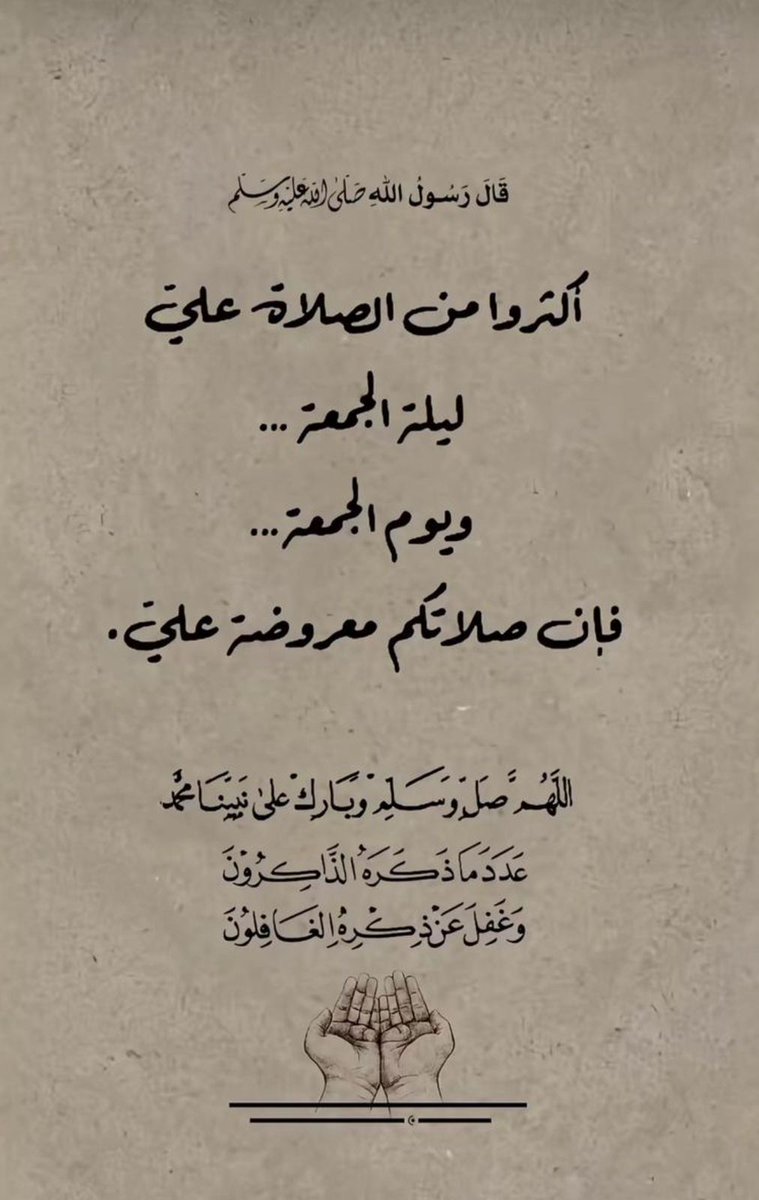 قَالَ رَسُولُ اللهِ صَلَّى اللهُ عَلَيْهِ وَسَلَّمَ
أكثروا من الصلاة عليّ
ليلة الجمعة ...
ويوم الجمعة ...
فإن صلاتكم معروضة عليّ .
اللَّهُمَّ صَلِّ وَسَلِّمْ وَبَارِكْ عَلَىٰ نَبِيِّنَا مُحَمَّد
عَدَدَ مَا ذَكَرَهُ الذَّاكِرُونَ
وَغَفِلَ عَنْ ذِكْرِهِ الْغَافِلُونَ